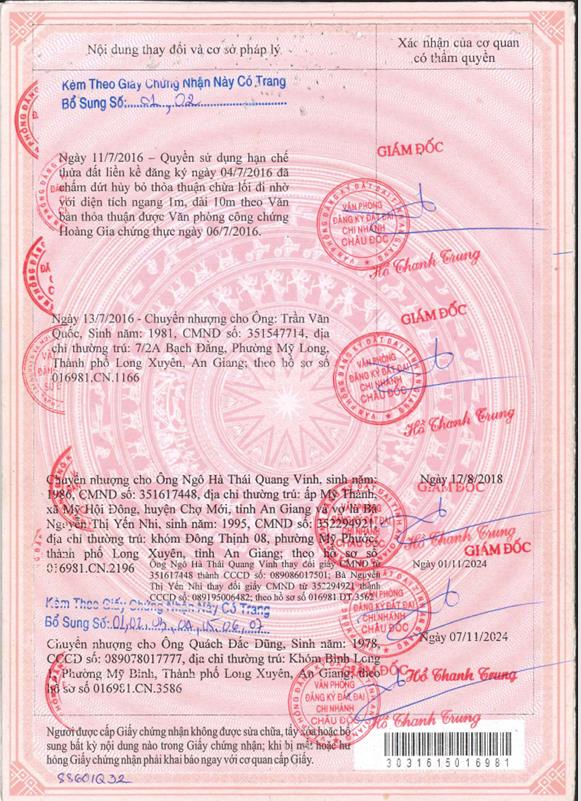 Nội dung thay đổi và cơ sở pháp lý
Xác nhận của cơ quan
có thẩm quyền
Kèm Theo Giấy Chứng Nhận Này Có Trang
Bổ Sung Số: 01, 02
Ngày 11/7/2016 – Quyền sử dụng hạn chế
thửa đất liền kề đăng ký ngày 04/7/2016 đã
chấm dứt hủy bỏ thỏa thuận chừa lối đi nhờ
với diện tích ngang 1m, dài 10m theo Văn
bản thỏa thuận được Văn phòng công chứng
Hoàng Gia chứng thực ngày 06/7/2016.
GIÁM ĐỐC
VĂN PHÒNG
ĐĂNG KÝ ĐẤT ĐAI
CHI NHÁNH
CHÂU ĐỐC
Hồ Thanh Trung
Ngày 13/7/2016 - Chuyển nhượng cho Ông: Trần Văn
Quốc, Sinh năm: 1981, CMND số: 351547714, địa
chỉ thường trú: 7/2A Bạch Đằng, Phường Mỹ Long,
Thành phố Long Xuyên, An Giang; theo hồ sơ số
016981.CN.1166
GIÁM ĐỐC
VĂN PHÒNG
ĐĂNG KÝ ĐẤT ĐAI
CHI NHÁNH
CHÂU ĐỐC
Hồ Thanh Trung
Chuyển nhượng cho Ông Ngô Hà Thái Quang Vinh, sinh năm:
1986, CMND số: 351617448, địa chỉ thường trú: ấp Mỹ Thành,
xã Mỹ Hội Đông, huyện Chợ Mới, tỉnh An Giang và vợ là Bà
Nguyễn Thị Yến Nhi, sinh năm: 1995, CMND số: 352294921,
địa chỉ thường trú: khóm Đông Thịnh 08, phường Mỹ Phước,
thành phố Long Xuyên, tỉnh An Giang; theo hồ sơ số
016981.CN.2196
Ngày 17/8/2018
GIÁM ĐỐC
Hồ Thanh Trung
Ông Ngô Hà Thái Quang Vinh thay đổi giấy CMND từ
351617448 thành CCCD số: 089086017501; Bà Nguyễn
Thị Yến Nhi thay đổi giấy CMND từ 352294921 thành
CCCD số: 089195006482; theo hồ sơ số 016981.DT.3562
Ngày 01/11/2024
GIÁM ĐỐC
Kèm Theo Giấy Chứng Nhận Này Có Trang
Bổ Sung Số: 01, 02, 03, 04, 05, 06, 07
Chuyển nhượng cho Ông Quách Đắc Dũng, Sinh năm: 1978,
CCCD số: 089078017777, địa chỉ thường trú: Khóm Bình Long
Phường Mỹ Bình, Thành phố Long Xuyên, An Giang; theo
hồ sơ số 016981.CN.3586
Ngày 07/11/2024
GIÁM ĐỐC
Hồ Thanh Trung
VĂN PHÒNG
ĐĂNG KÝ ĐẤT ĐAI
CHI NHÁNH
CHÂU ĐỐC
Hồ Thanh Trung
Người được cấp Giấy chứng nhận không được sửa chữa, tẩy xóa hoặc bổ
sung bất kỳ nội dung nào trong Giấy chứng nhận; khi bị mất hoặc hư
hỏng Giấy chứng nhận phải khai báo ngay với cơ quan cấp Giấy.
3031615016981